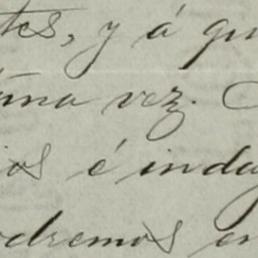 tes, y á qu
ima vez.
ios é inda
odremos en